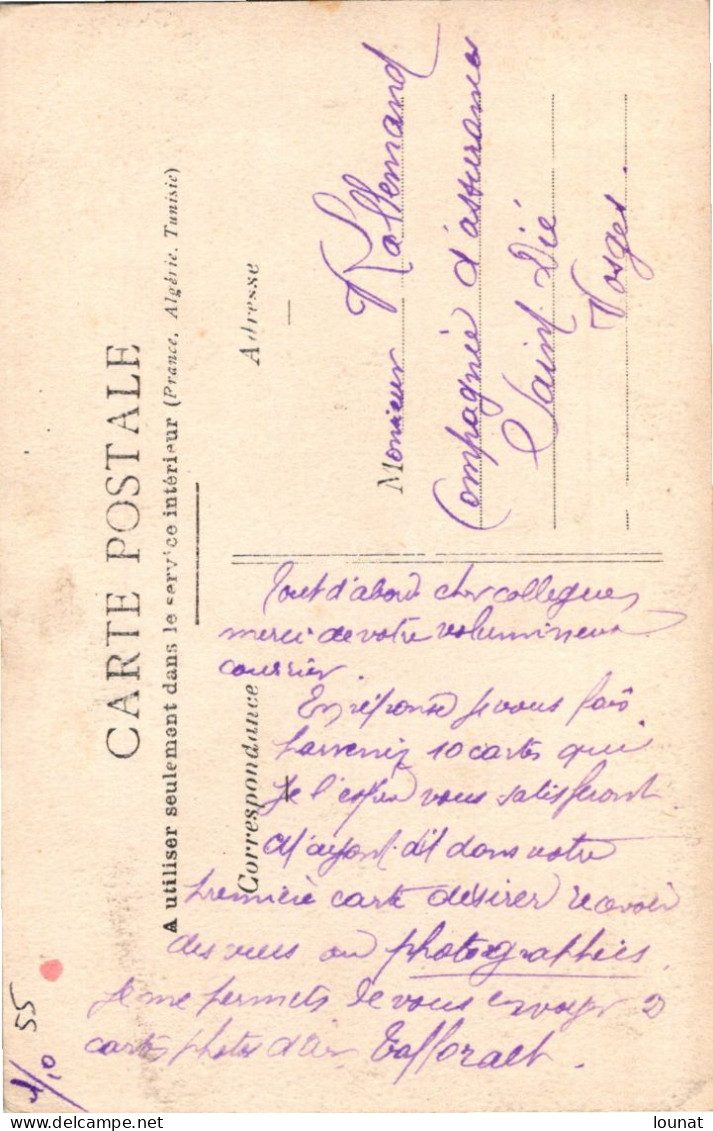 CARTE POSTALE
A utiliser seulement dans le service intérieur (France, Algérie, Tunisie)
Correspondance
Adresse
Monsieur Kollemand
Compagnie d'assurances
Saint Dié
Vosges.
Tout d'abord cher collègue,
merci de votre volumineux
courrier.
En réponse je vous fais
parvenir 10 cartes qui
je l'espère vous satisferont.
M'ayant dit dans votre
première carte désirer recevoir
des vues ou photographies.
Je me permets de vous envoyer 2
cartes photos d'Aïn Taforalt.
1/10 55
lounat